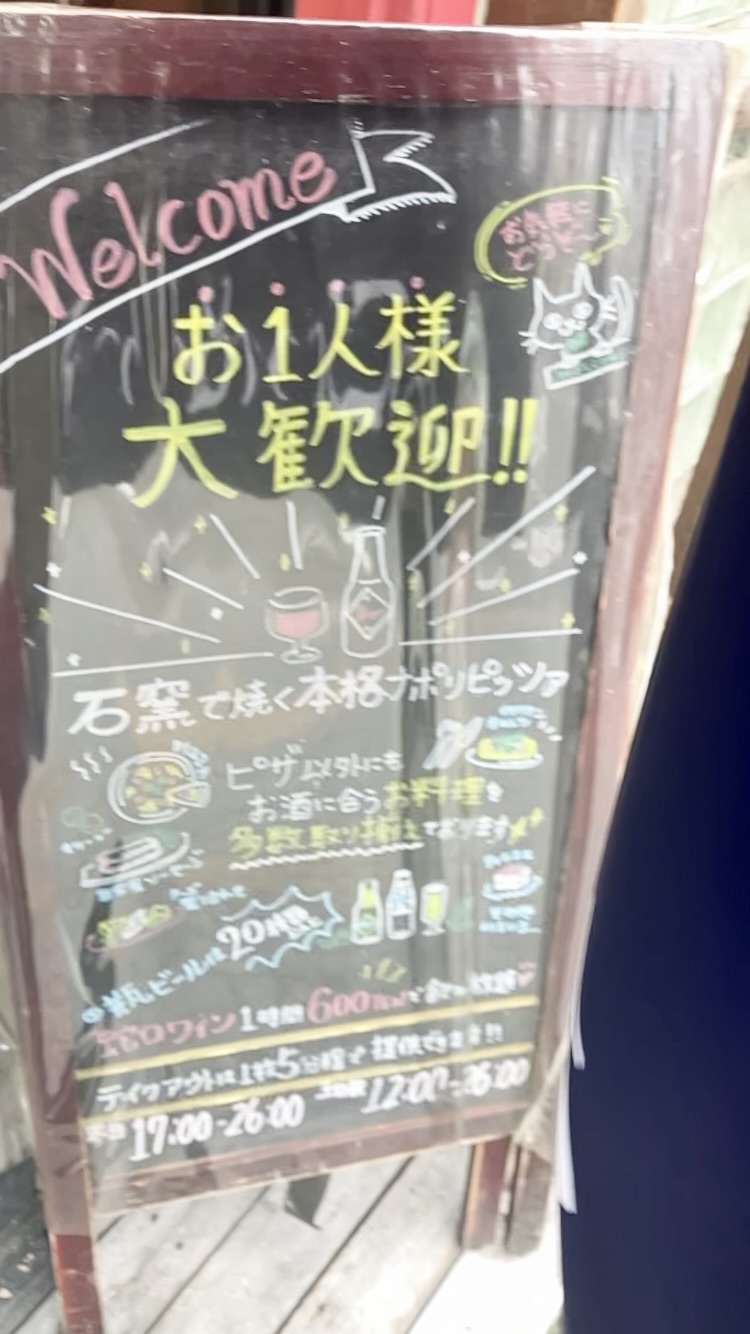 Welcome
お気軽に
どうぞ〜
お1人様
大歓迎!!
石窯で焼く本格ナポリピッツァ
ピザ以外にも
お酒に合うお料理を
多数取り揃えております
瓶ビールは20種
蛇口ワイン1時間600で飲み放題
テイクアウトは1枚5分程で提供できます!!
平日17:00-26:00 12:00-26:00